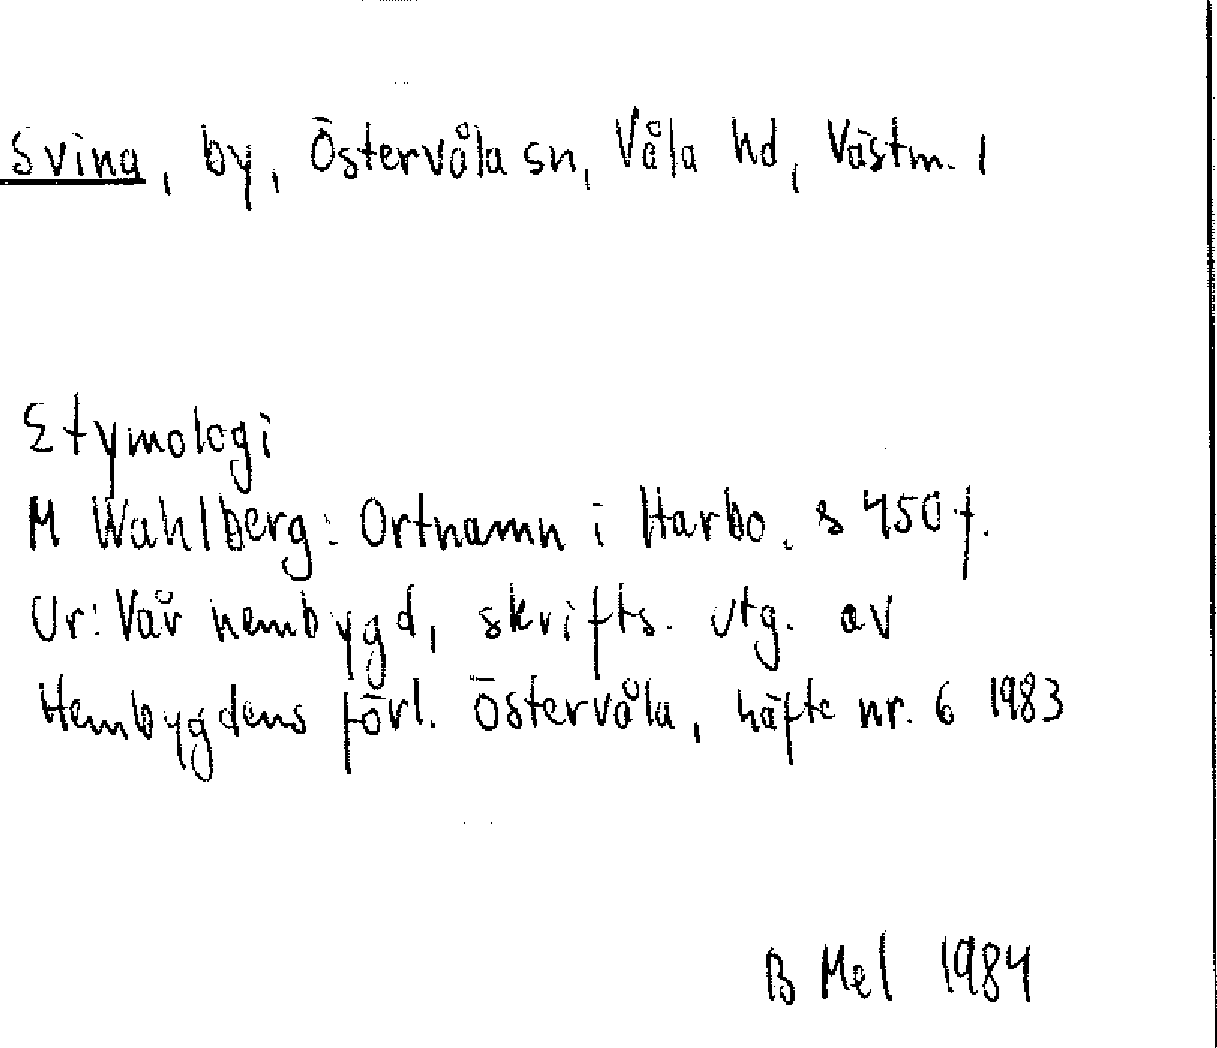 Svina, by, Östervåla sn, Våla hd, Västm. l
Etymologi
M Wahlberg: Ortnamn i Harbo. s 450 f.
Ur: Vår hembygd, skrifts. utg. av
Hembygdens förl. Östervåla, häfte nr. 6 1983
B Mel 1984